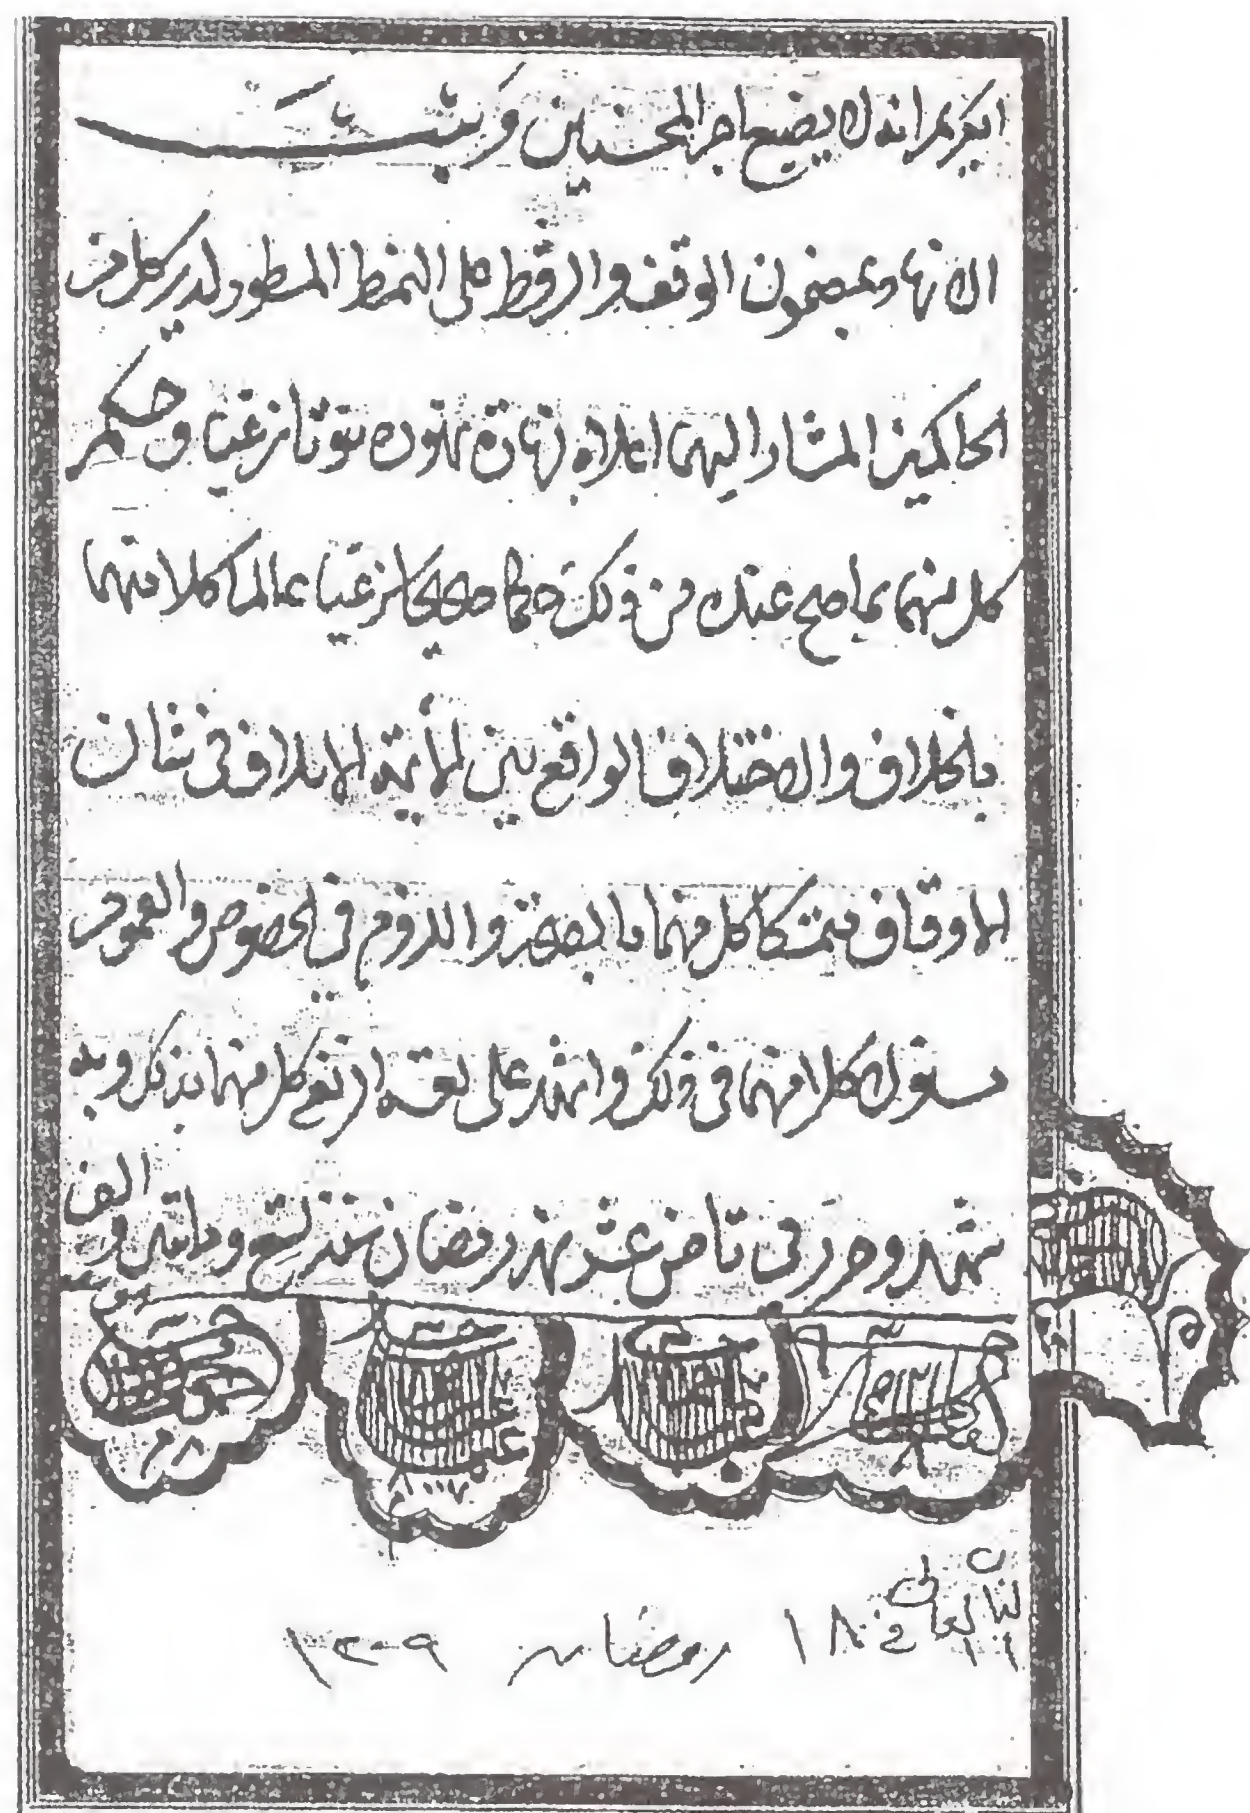 الكريم انه لا يضيع اجر المحسنين وثبت
الاشهاد بمضمون الوقف والشرط على النمط المسطور لدى كل من
الحاكمين المشار اليهما اعلاه بشهادة شهوده ثبوتا شرعيا وحكم
كل منهما بما صح عنده من ذلك حكما صحيحا شرعيا عالما كلا منهما
بالخلاف والاختلاف الواقع بين الأيمة الاسلاف في شان
الاوقاف متمسكا كل منهما بالصحة واللزوم في الخصوص والعموم
مسئولا كلا منهما في ذلك واشهد على نفسه الشريفه كل منهما بذلك وبه
شهد وحرر في ثامن عشر شهر رمضان سنة تسع ومايتين والف
١٨ رمضان ١٢٠٩